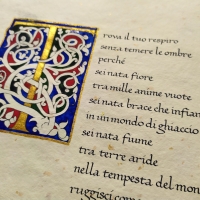 Trova il tuo respiro
senza temere le ombre
perché
sei nata fiore
tra mille anime vuote
sei nata brace che infian
in un mondo di ghiaccio
sei nata fiume
tra terre aride
nella tempesta del mon
ruggisci com